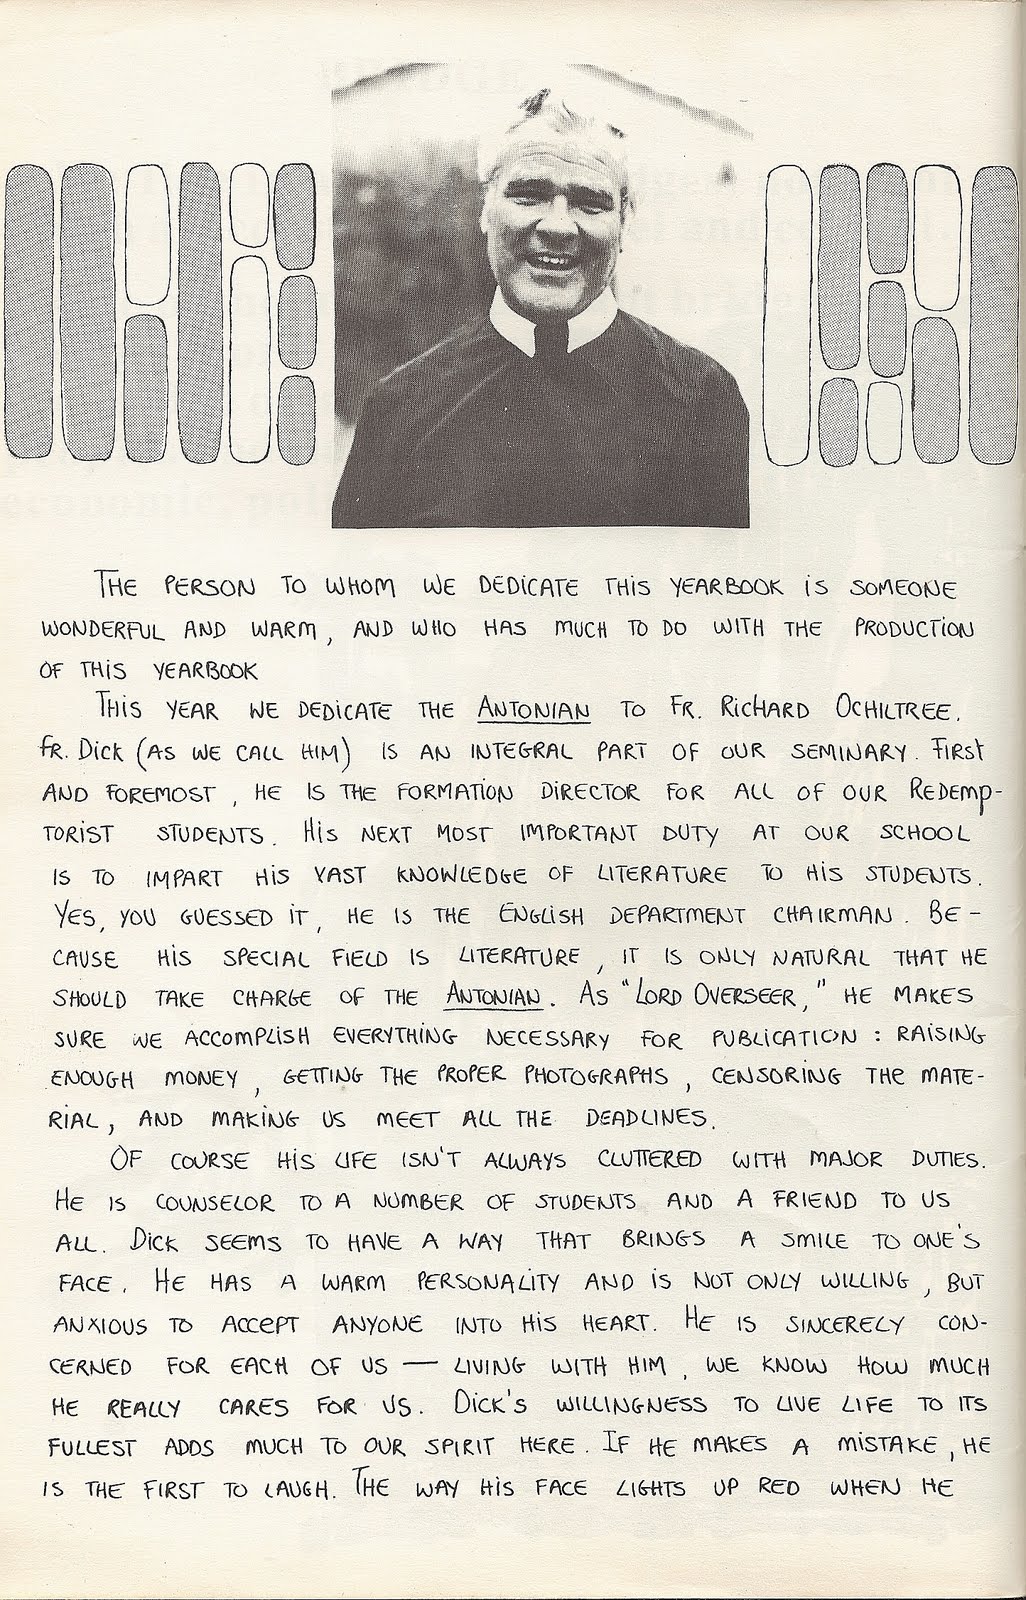 THE PERSON TO WHOM WE DEDICATE THIS YEARBOOK IS SOMEONE
WONDERFUL AND WARM, AND WHO HAS MUCH TO DO WITH THE PRODUCTION
OF THIS YEARBOOK
THIS YEAR WE DEDICATE THE ANTONIAN TO FR. RICHARD OCHILTREE.
FR. DICK (AS WE CALL HIM) IS AN INTEGRAL PART OF OUR SEMINARY. FIRST
AND FOREMOST, HE IS THE FORMATION DIRECTOR FOR ALL OF OUR REDEMP-
TORIST STUDENTS. HIS NEXT MOST IMPORTANT DUTY AT OUR SCHOOL
IS TO IMPART HIS VAST KNOWLEDGE OF LITERATURE TO HIS STUDENTS.
YES, YOU GUESSED IT, HE IS THE ENGLISH DEPARTMENT CHAIRMAN. BE-
CAUSE HIS SPECIAL FIELD IS LITERATURE, IT IS ONLY NATURAL THAT HE
SHOULD TAKE CHARGE OF THE ANTONIAN. AS "LORD OVERSEER," HE MAKES
SURE WE ACCOMPLISH EVERYTHING NECESSARY FOR PUBLICATION: RAISING
ENOUGH MONEY, GETTING THE PROPER PHOTOGRAPHS, CENSORING THE MATE-
RIAL, AND MAKING US MEET ALL THE DEADLINES.
OF COURSE HIS LIFE ISN'T ALWAYS CLUTTERED WITH MAJOR DUTIES.
HE IS COUNSELOR TO A NUMBER OF STUDENTS AND A FRIEND TO US
ALL. DICK SEEMS TO HAVE A WAY THAT BRINGS A SMILE TO ONE'S
FACE. HE HAS A WARM PERSONALITY AND IS NOT ONLY WILLING, BUT
ANXIOUS TO ACCEPT ANYONE INTO HIS HEART. HE IS SINCERELY CON-
CERNED FOR EACH OF US — LIVING WITH HIM, WE KNOW HOW MUCH
HE REALLY CARES FOR US. DICK'S WILLINGNESS TO LIVE LIFE TO ITS
FULLEST ADDS MUCH TO OUR SPIRIT HERE. IF HE MAKES A MISTAKE, HE
IS THE FIRST TO LAUGH. THE WAY HIS FACE LIGHTS UP RED WHEN HE